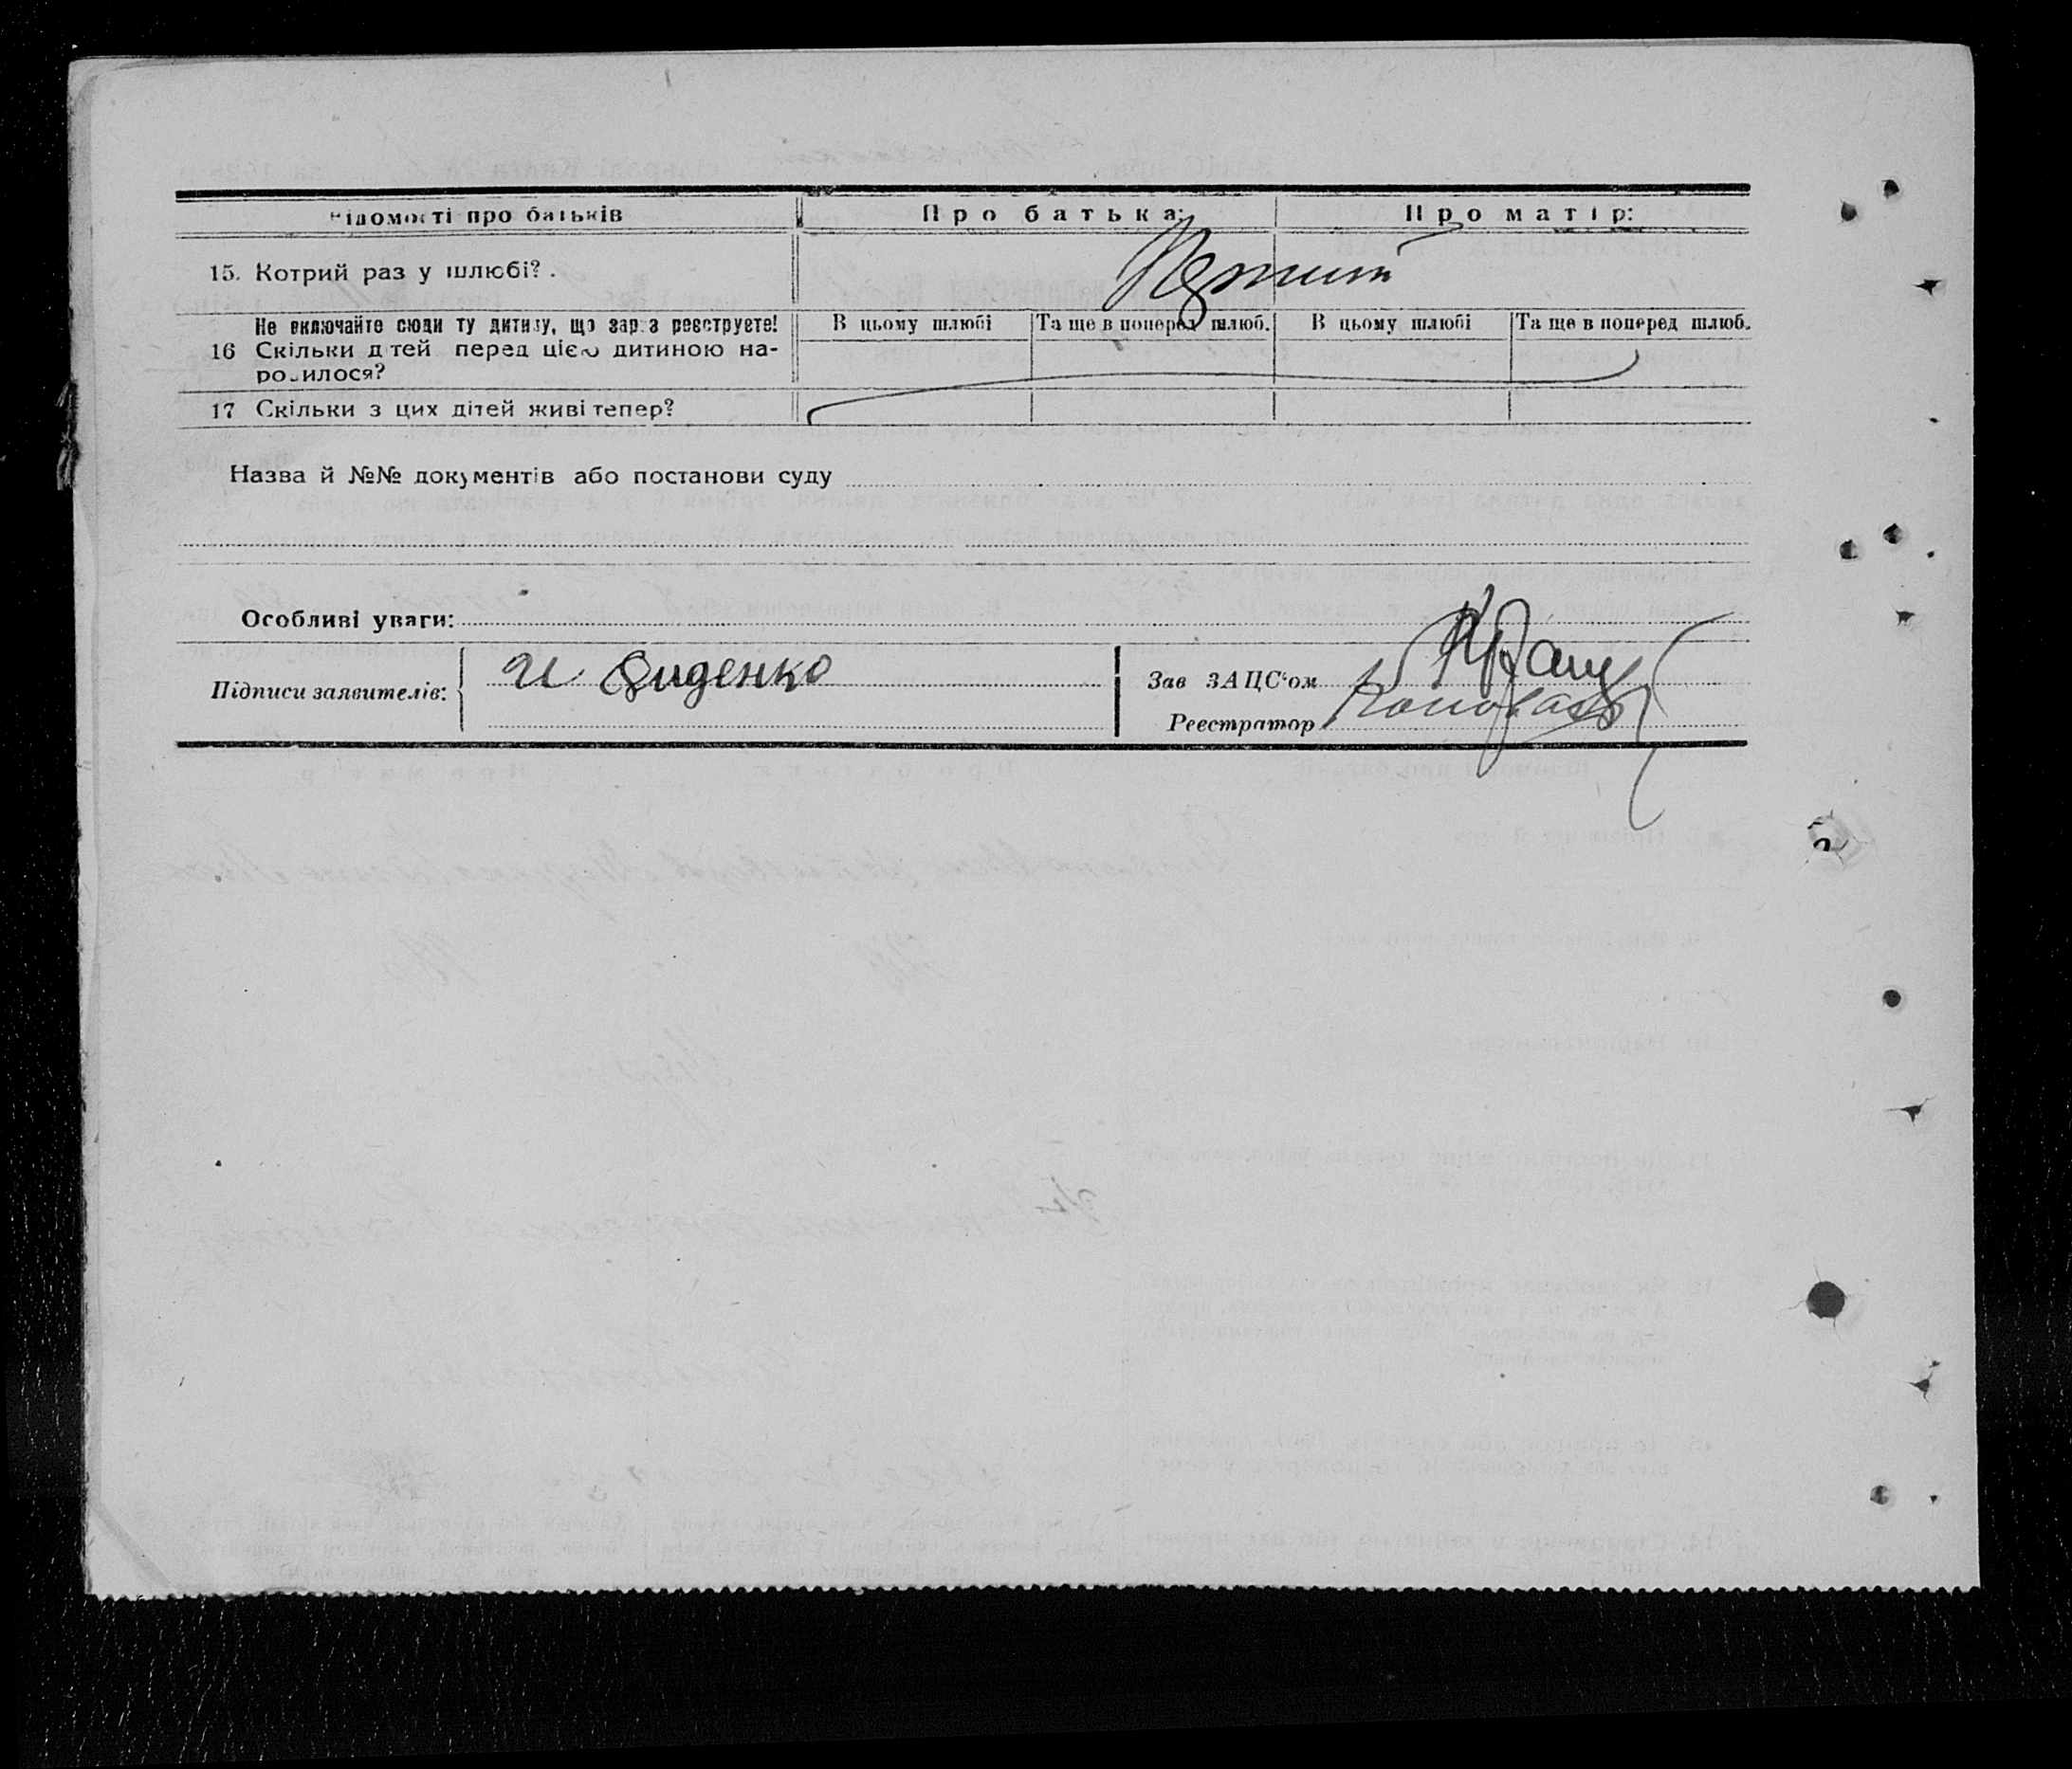 Відомості про батьків
Про батька:
Про матір:
15. Котрий раз у шлюбі?.
Не включайте сюди ту дитину, що зараз реєструєте!
В цьому шлюбі
Та ще в поперед шлюб.
В цьому шлюбі
Та ще в поперед шлюб.
16 Скільки дітей перед цією дитиною на-
родилося?
17 Скільки з цих дітей живі тепер?
Назва й №№ документів або постанови суду
Особливі уваги:
Підписи заявителів:
И Диденко
Зав ЗАЦС'ом
Реєстратор